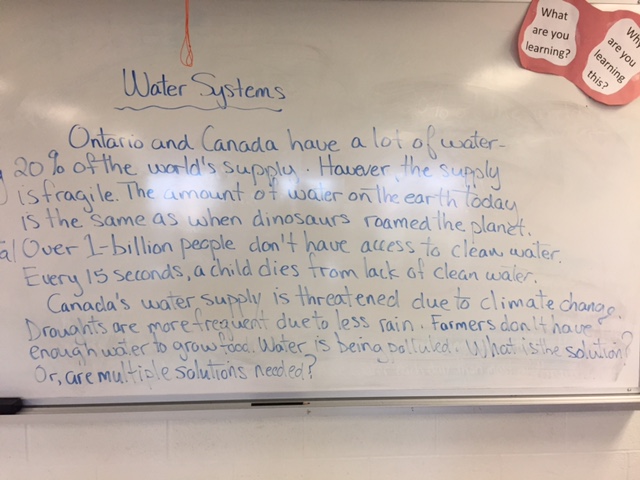 What
are you
learning?
Why
are you
learning
this?
Water Systems
Ontario and Canada have a lot of water-
20% of the world's supply. However, the supply
is fragile. The amount of water on the earth today
is the same as when dinosaurs roamed the planet.
Over 1-billion people don't have access to clean water.
Every 15 seconds, a child dies from lack of clean water.
Canada's water supply is threatened due to climate change.
Droughts are more frequent due to less rain. Farmers don't have
enough water to grow food. Water is being polluted. What is the solution?
Or, are multiple solutions needed?